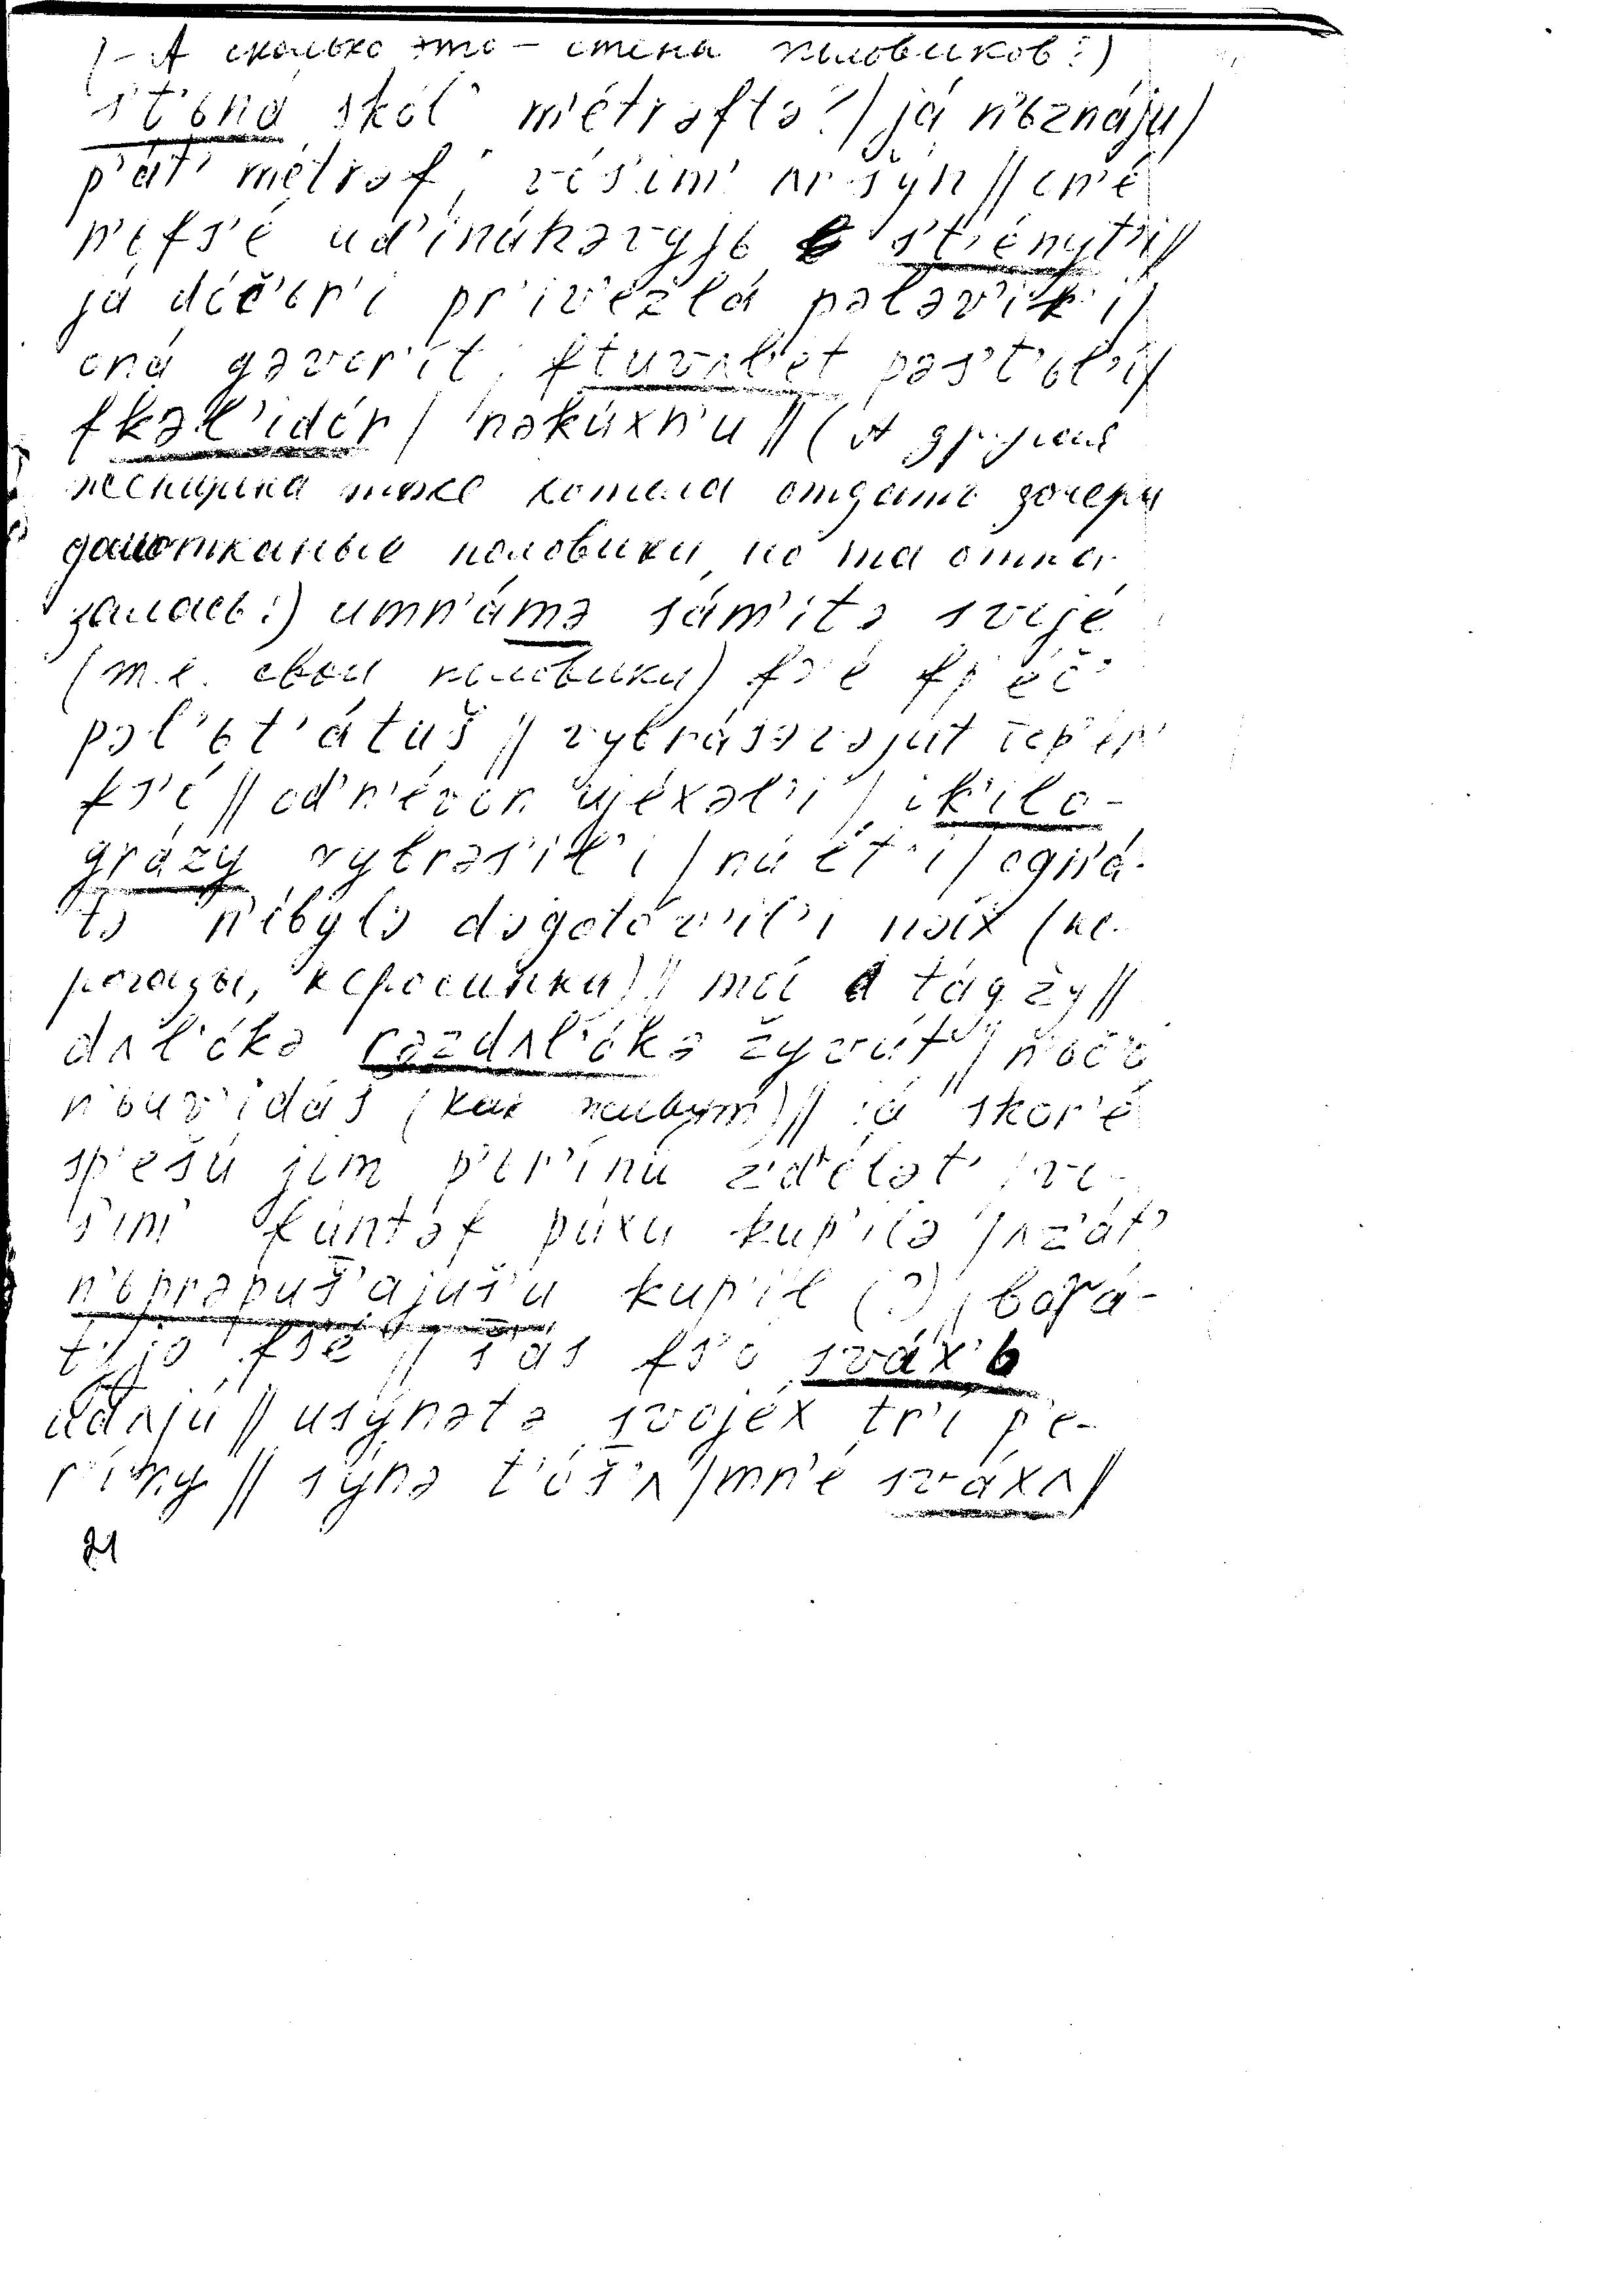 (- А сколько это - стена половиков?)
s't'ьná skól' m'étrəftə?/ já n'ьznáju/
p'át' m'étrəf, vós'im' ʌršýn // on'é
n'efs'é ud'inákəvyjь s't'ényt'i//
já dóč'ьr'i pr'iv'ezlá pəlav'ik'í/
oná gəvor'ít, ftuvʌl'ét pəs't'ьl'í/
fkəl'idór/ nakúxn'u // (А другая
женщина тоже хотела отдать дочери
домотканые половики, но та отка-
залась:) umn'ámə sám'itə svojé
(т.е. свои половики) fs'é fp'éč'
pəl'ьt'átuš // vybrásəvəjut t'ep'ér'
fs'é // od'n'é von ujéxəl'i / ik'ilo-
grázy vybrəs'il'i / nú ét'i / ogn'á-
tə n'ébylə dəgotóv'il'i nəíx (ке-
рогазы, керосинки) // moí tág žy //
dʌl'ókə rəzdʌl'ókə žyvút / n'ьč'ó
n'ьuv'idáš (как живут) // já skor'é
sp'ešú jim p'er'ínu z'd'élət' / vó-
s'im' fúntəf púxu kup'ílə / ʌz'át'
n'ьprəpuš'ájuš'u kup'íl (?) / bogá-
tyjo fs'é // š'ás fs'o sváx'ь
udʌjú // usýnətə svojéx tr'í pe-
r'íny // sýnə t'óš'ʌ / mn'é sváxʌ //
21